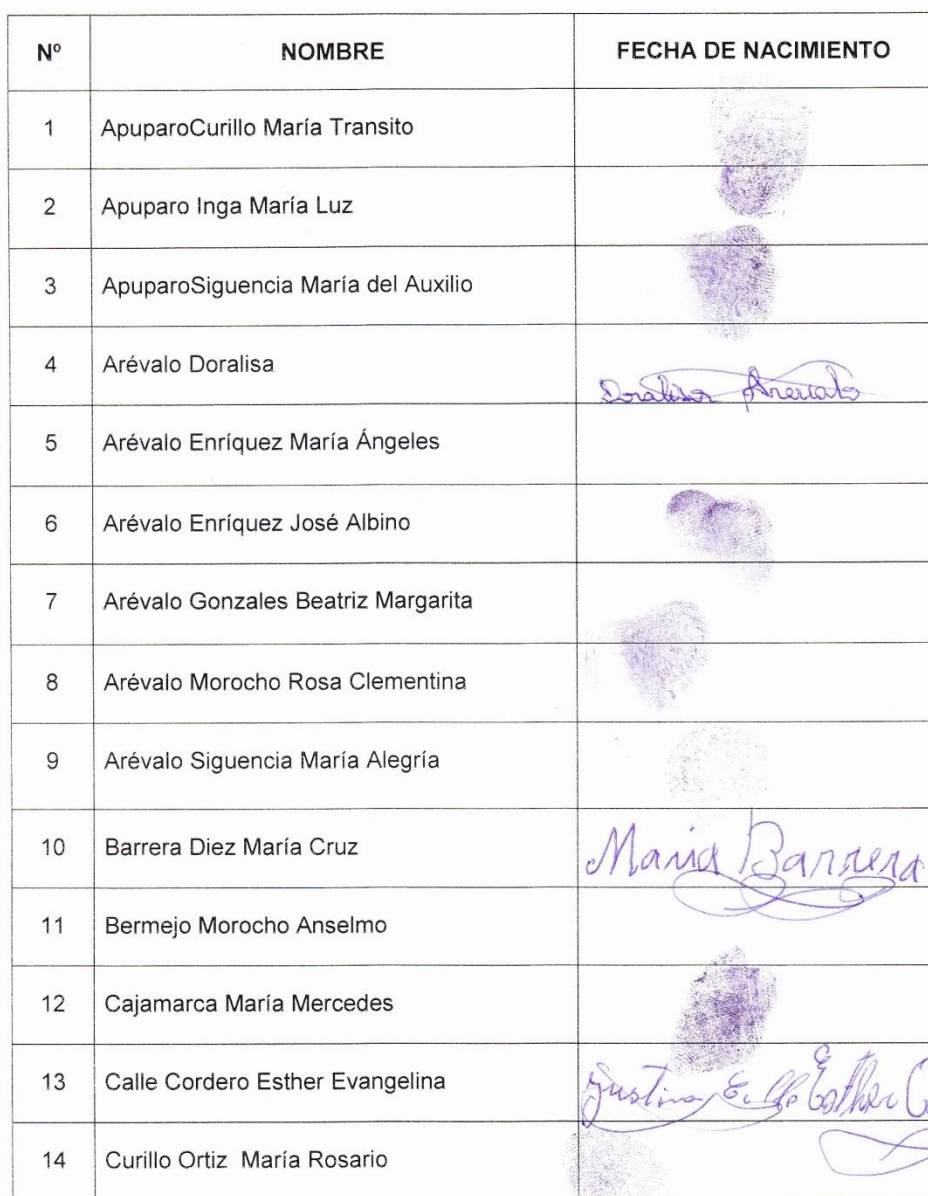 Nº NOMBRE FECHA DE NACIMIENTO
1 ApuparoCurillo María Transito
2 Apuparo Inga María Luz
3 ApuparoSiguencia María del Auxilio
4 Arévalo Doralisa
Doralisa Arevalo
5 Arévalo Enríquez María Ángeles
6 Arévalo Enríquez José Albino
7 Arévalo Gonzales Beatriz Margarita
8 Arévalo Morocho Rosa Clementina
9 Arévalo Siguencia María Alegría
10 Barrera Diez María Cruz Maria Barrera
11 Bermejo Morocho Anselmo
12 Cajamarca María Mercedes
13 Calle Cordero Esther Evangelina Esther
14 Curillo Ortiz María Rosario